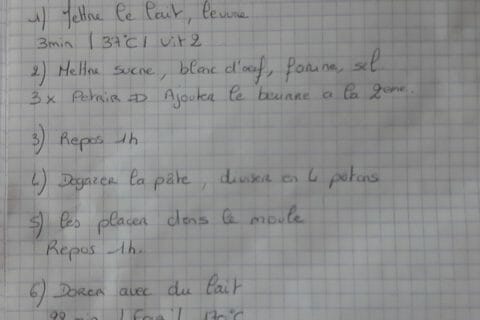 1) Mettre le lait, levure
3min / 37°C / vit 2
2) Mettre sucre, blanc d'oeuf, farine, sel
3 x Petrir => Ajouter le beurre a la 2eme.
3) Repos 1h
4) Degazer la pâte, diviser en 4 patons
5) Les placer dans le moule
Repos 1h.
6) Dorer avec du lait